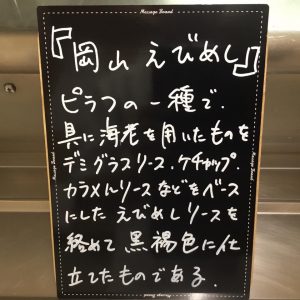 Message Board
『岡山えびめし』
ピラフの一種で、
具に海老を用いたものを
デミグラスソース、ケチャップ、
カラメルソースなどをベース
にした えびめしソースを
絡めて 黒褐色に仕
立てたものである。
Message Board
Message Board
Message Board